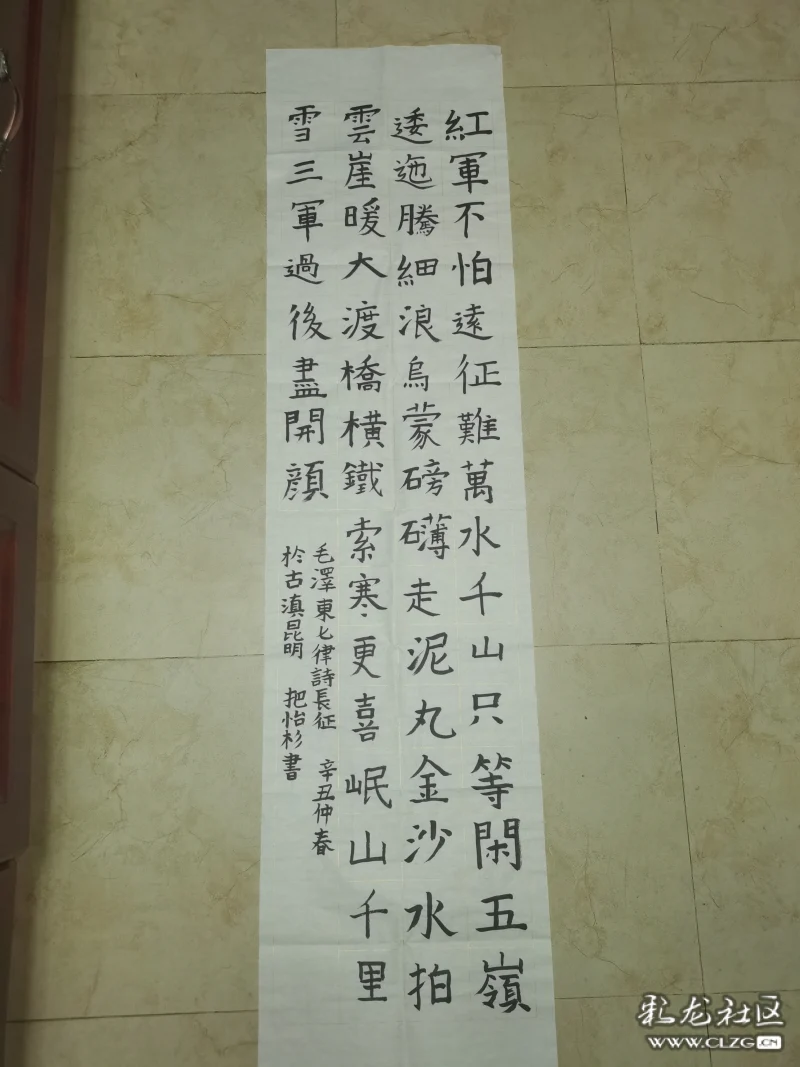 紅軍不怕遠征難萬水千山只等閑五嶺
逶迤騰細浪烏蒙磅礴走泥丸金沙水拍
雲崖暖大渡橋橫鐵索寒更喜岷山千里
雪三軍過後盡開顏
毛澤東七律詩長征 辛丑仲春
於古滇昆明 把怡杉書
彩龙社区
WWW.CLZG.CN